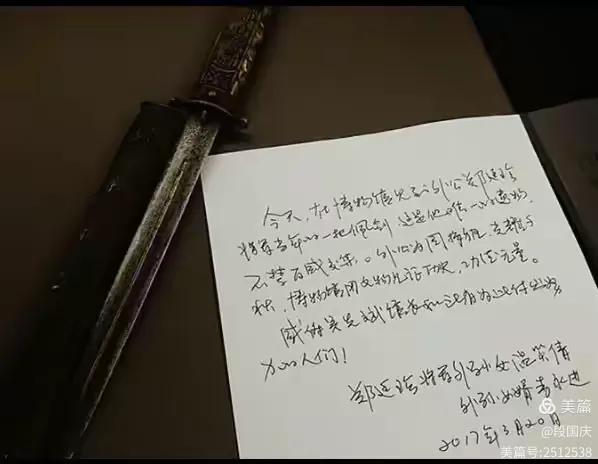 今天,在博物馆见到外公郑廷珍
将军当年的一把佩剑,这是他唯一的遗物,
不禁百感交集。外公为国捐躯,光耀千
秋,博物馆用文物见证历史,功德无量。
感谢吴先斌馆长和所有为这付出努
力的人们!
郑廷珍将军外孙女温
外孙女婿
2017年3月20日
美篇
@段国庆
美篇号:2512538